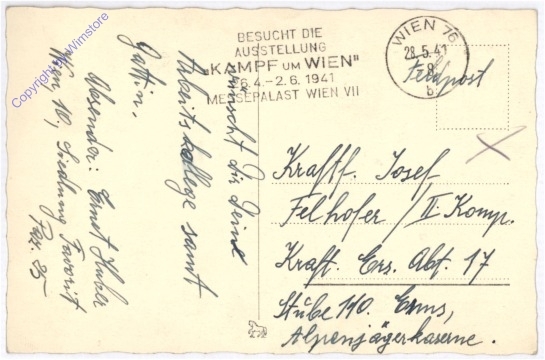 BESUCHT DIE
AUSSTELLUNG
„KAMPF UM WIEN"
6.4.–2.6. 1941
MESSEPALAST WIEN VII
WIEN 76
28.5.41
8
b
Feldpost
wünscht dir deine
Arbeitskollege samt
Gattin.
Absender: Ernst Huber
Wien 10, Siedlung Favorit
Parz. 85
Kraftf. Josef
Felhofer / II. Komp.
Kraft. Ers. Abt. 17
Stube 140. Enns,
Alpenjägerkaserne.
Copyright by Wimstore